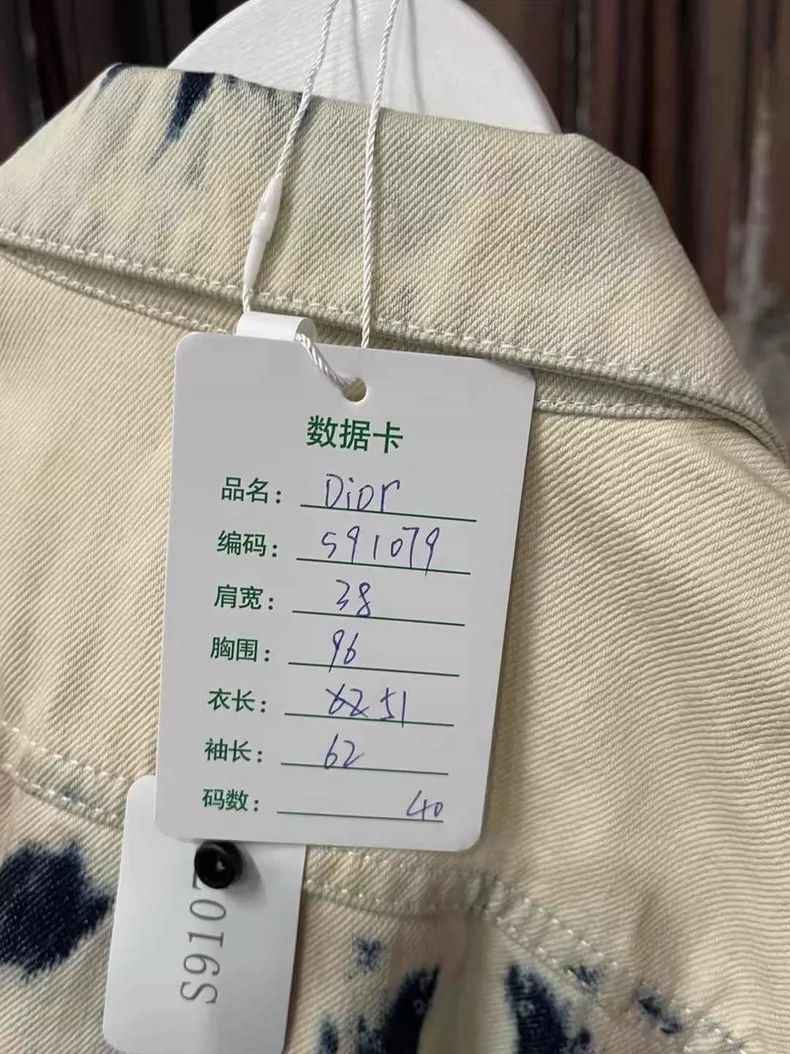 数据卡
品名: Dior
编码: S91079
肩宽: 38
胸围: 96
衣长: 62 51
袖长: 62
码数: 40
S9107